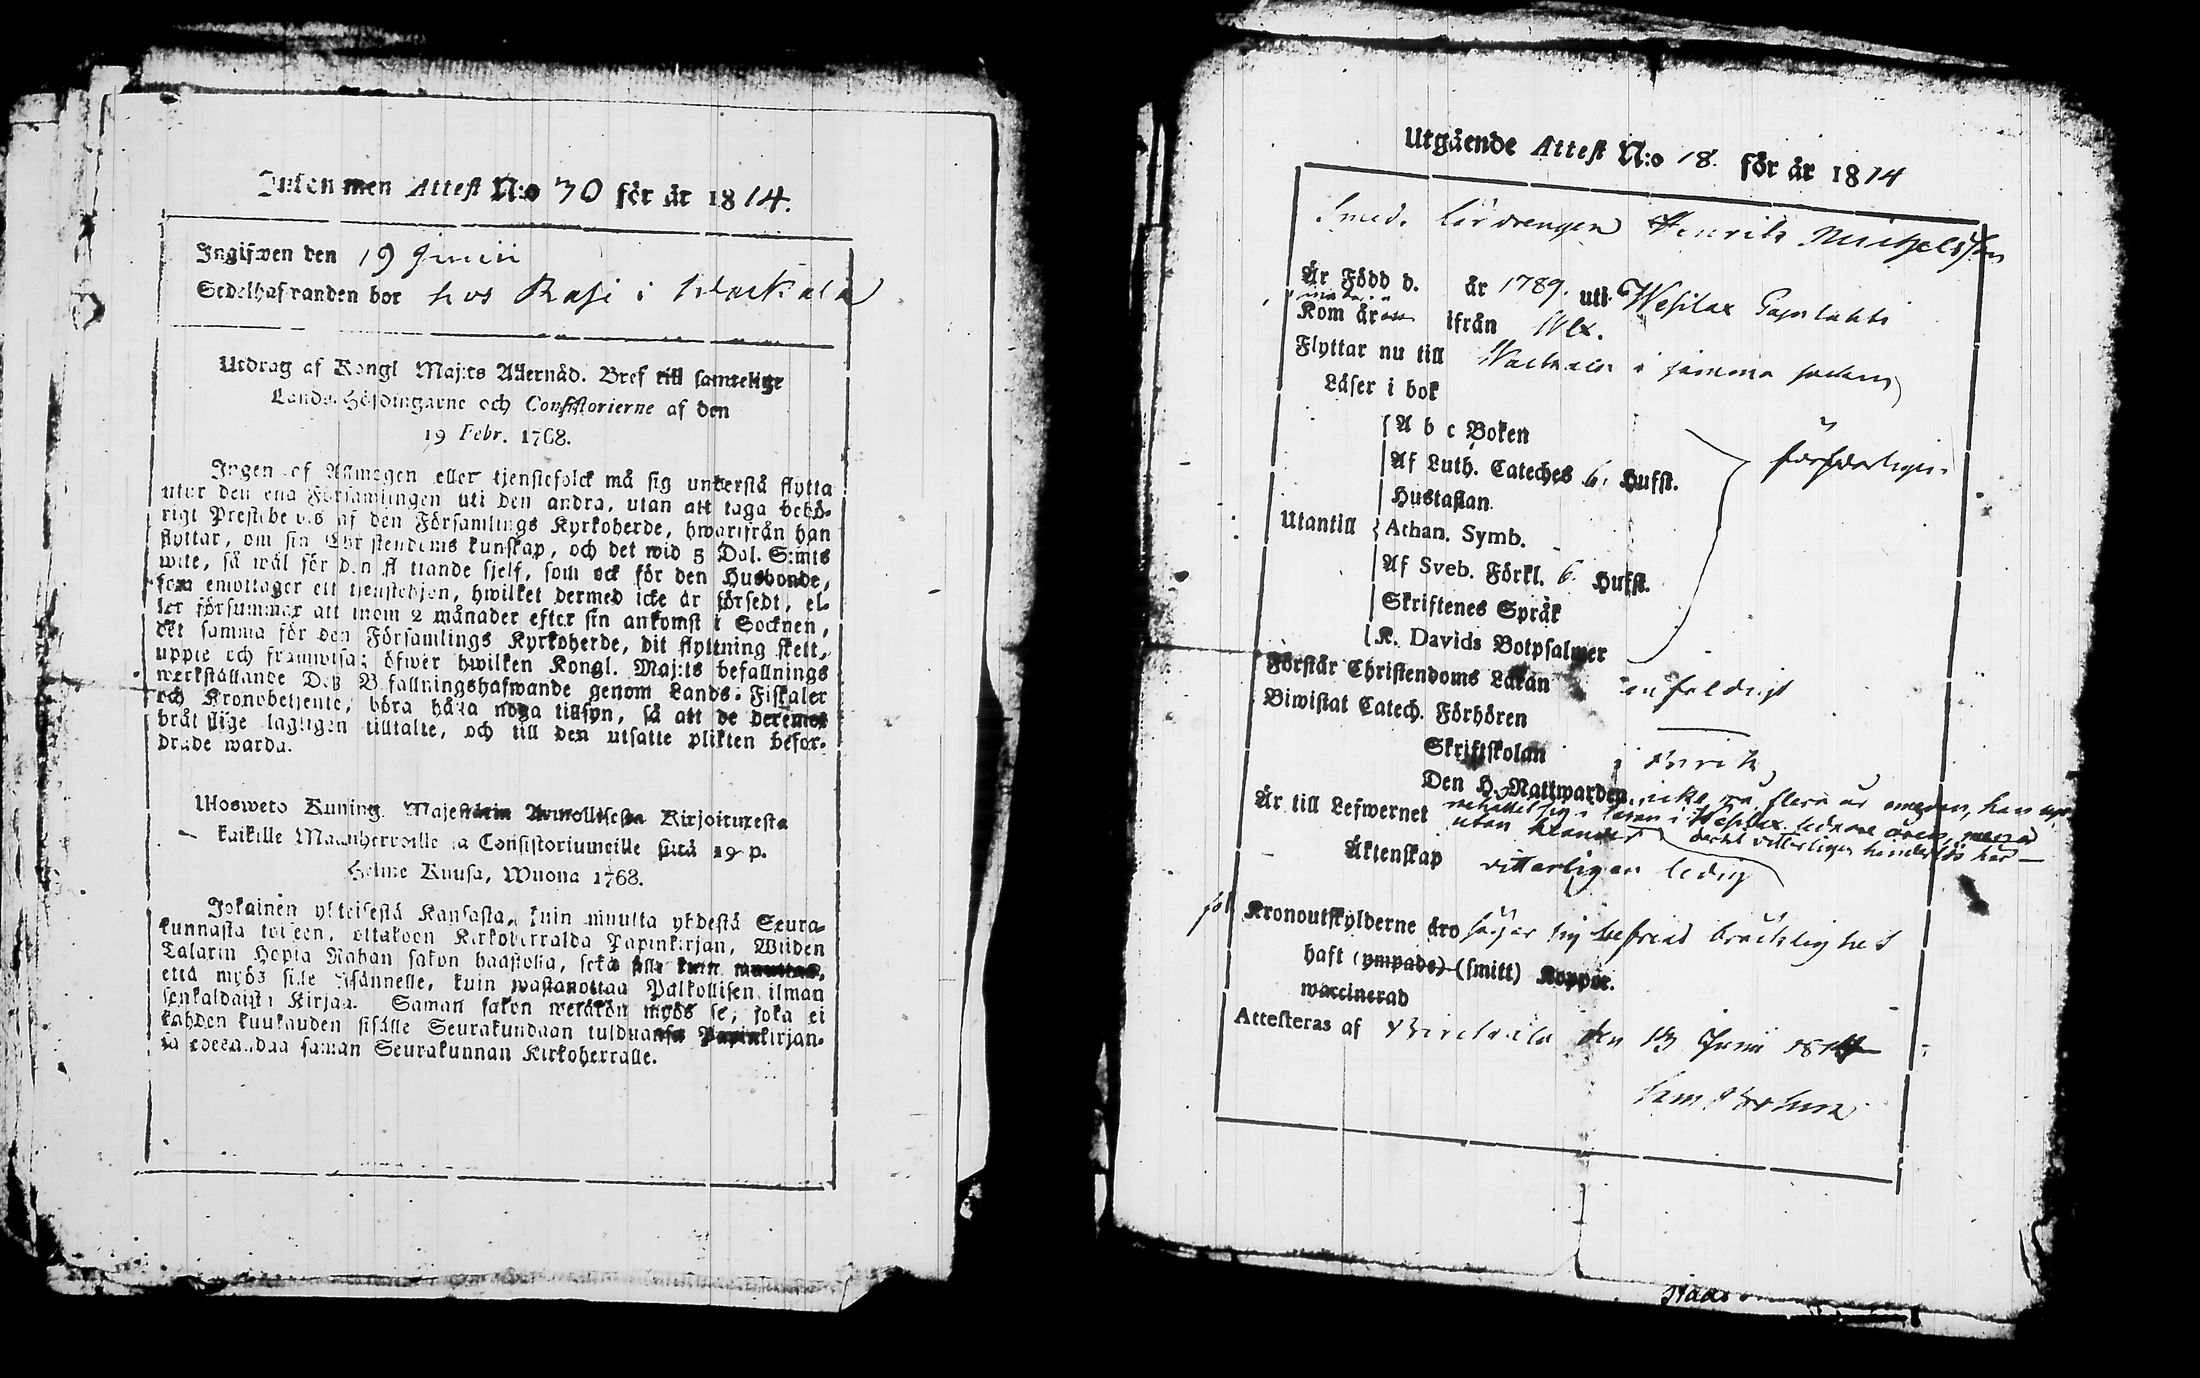 Inkommen Attest N:o 70 för år 1814.
Ingifwen den 19 Junii
Sedelhafwanden bor hos Rasi i
Utdrag af Kongl Maj:ts Allernåd. Bref till samtelige
Lands-Höfdingarne och Consistorierne af den
19 Febr. 1768.
Ingen af Allmogen eller tjenstefolck må sig understå flytta
utur den ena Församlingen uti den andra, utan att taga behö-
rigt Prestebevis af den Församlings Kyrkoherde, hwarifrån han
flyttar, om sin Christendoms kunskap, och det wid 5 Dal. S:mts
wite, så wäl för den flyttande sjelf, som ock för den Husbonde,
som emottager ett tjenstehjon, hwilket dermed icke är försedt, el-
ler försummar att inom 2 månader efter sin ankomst i Socknen,
det samma för den Församlings Kyrkoherde, dit flyttning skett,
uppte och framwisa; öfwer hwilken Kongl. Maj:ts befallnings
werkställande Deß Befallningshafwande genom Lands-Fiskaler
och Kronobetjente, böra hålla noga tillsyn, så att de deremot
bråttslige lagligen tilltalte, och till den utsatte plikten befor-
drade warda.
Ulosweto Kuning. Majestetin Armollisesta Kirjoituxesta
kaikille Maanherroille ja Consistoriumeille siitä 19 p.
Helme Kuusa, Wuona 1768.
Jokainen yhteisestä Kansasta, kuin muutta yhdestä Seura-
kunnasta toiseen, ottakoon Kirkoherralda Papinkirjan, Wiiden
Talarin Hopia Rahan sakon haastolla, sekä sille kuin muuttaa,
että myös sille Isännelle, kuin wastanottaa Palkollisen ilman
senkaldaista Kirjaa. Saman sakon wetäkön myös se, joka ei
kahden kuukauden sisälle Seurakundaan tulduansa Papinkirjan-
sa edesandaa saman Seurakunnan Kirkoherralle.
Utgående Attest N:o 18. för år 1814
Smeds lärdrengen Henrik Michelsson
Är Född d. år 1789. uti Wesilax
Kom år ifrån Wlx.
Flyttar nu till i samma socken
Läser i bok
A b c Boken
Af Luth. Cateches 6. Hufst.
Hustaflan
Utantill Athan. Symb.
Af Sveb. Förkl. 6. Hufst.
Skriftenes Språk
K. Davids Botpsalmer
Förstår Christendoms Läran enfaldigt
Biwistat Catech. Förhören
Skriftskolan
Den H. Nattwarden icke på flera år
Är till Lefwernet
utan
Äktenskap vitterligen ledig
Kronoutskylderne äro säger sig befriad
haft (ympade) (smitt) Koppor.
waccinerad
Attesteras af Birckala den 13 Junii 1814